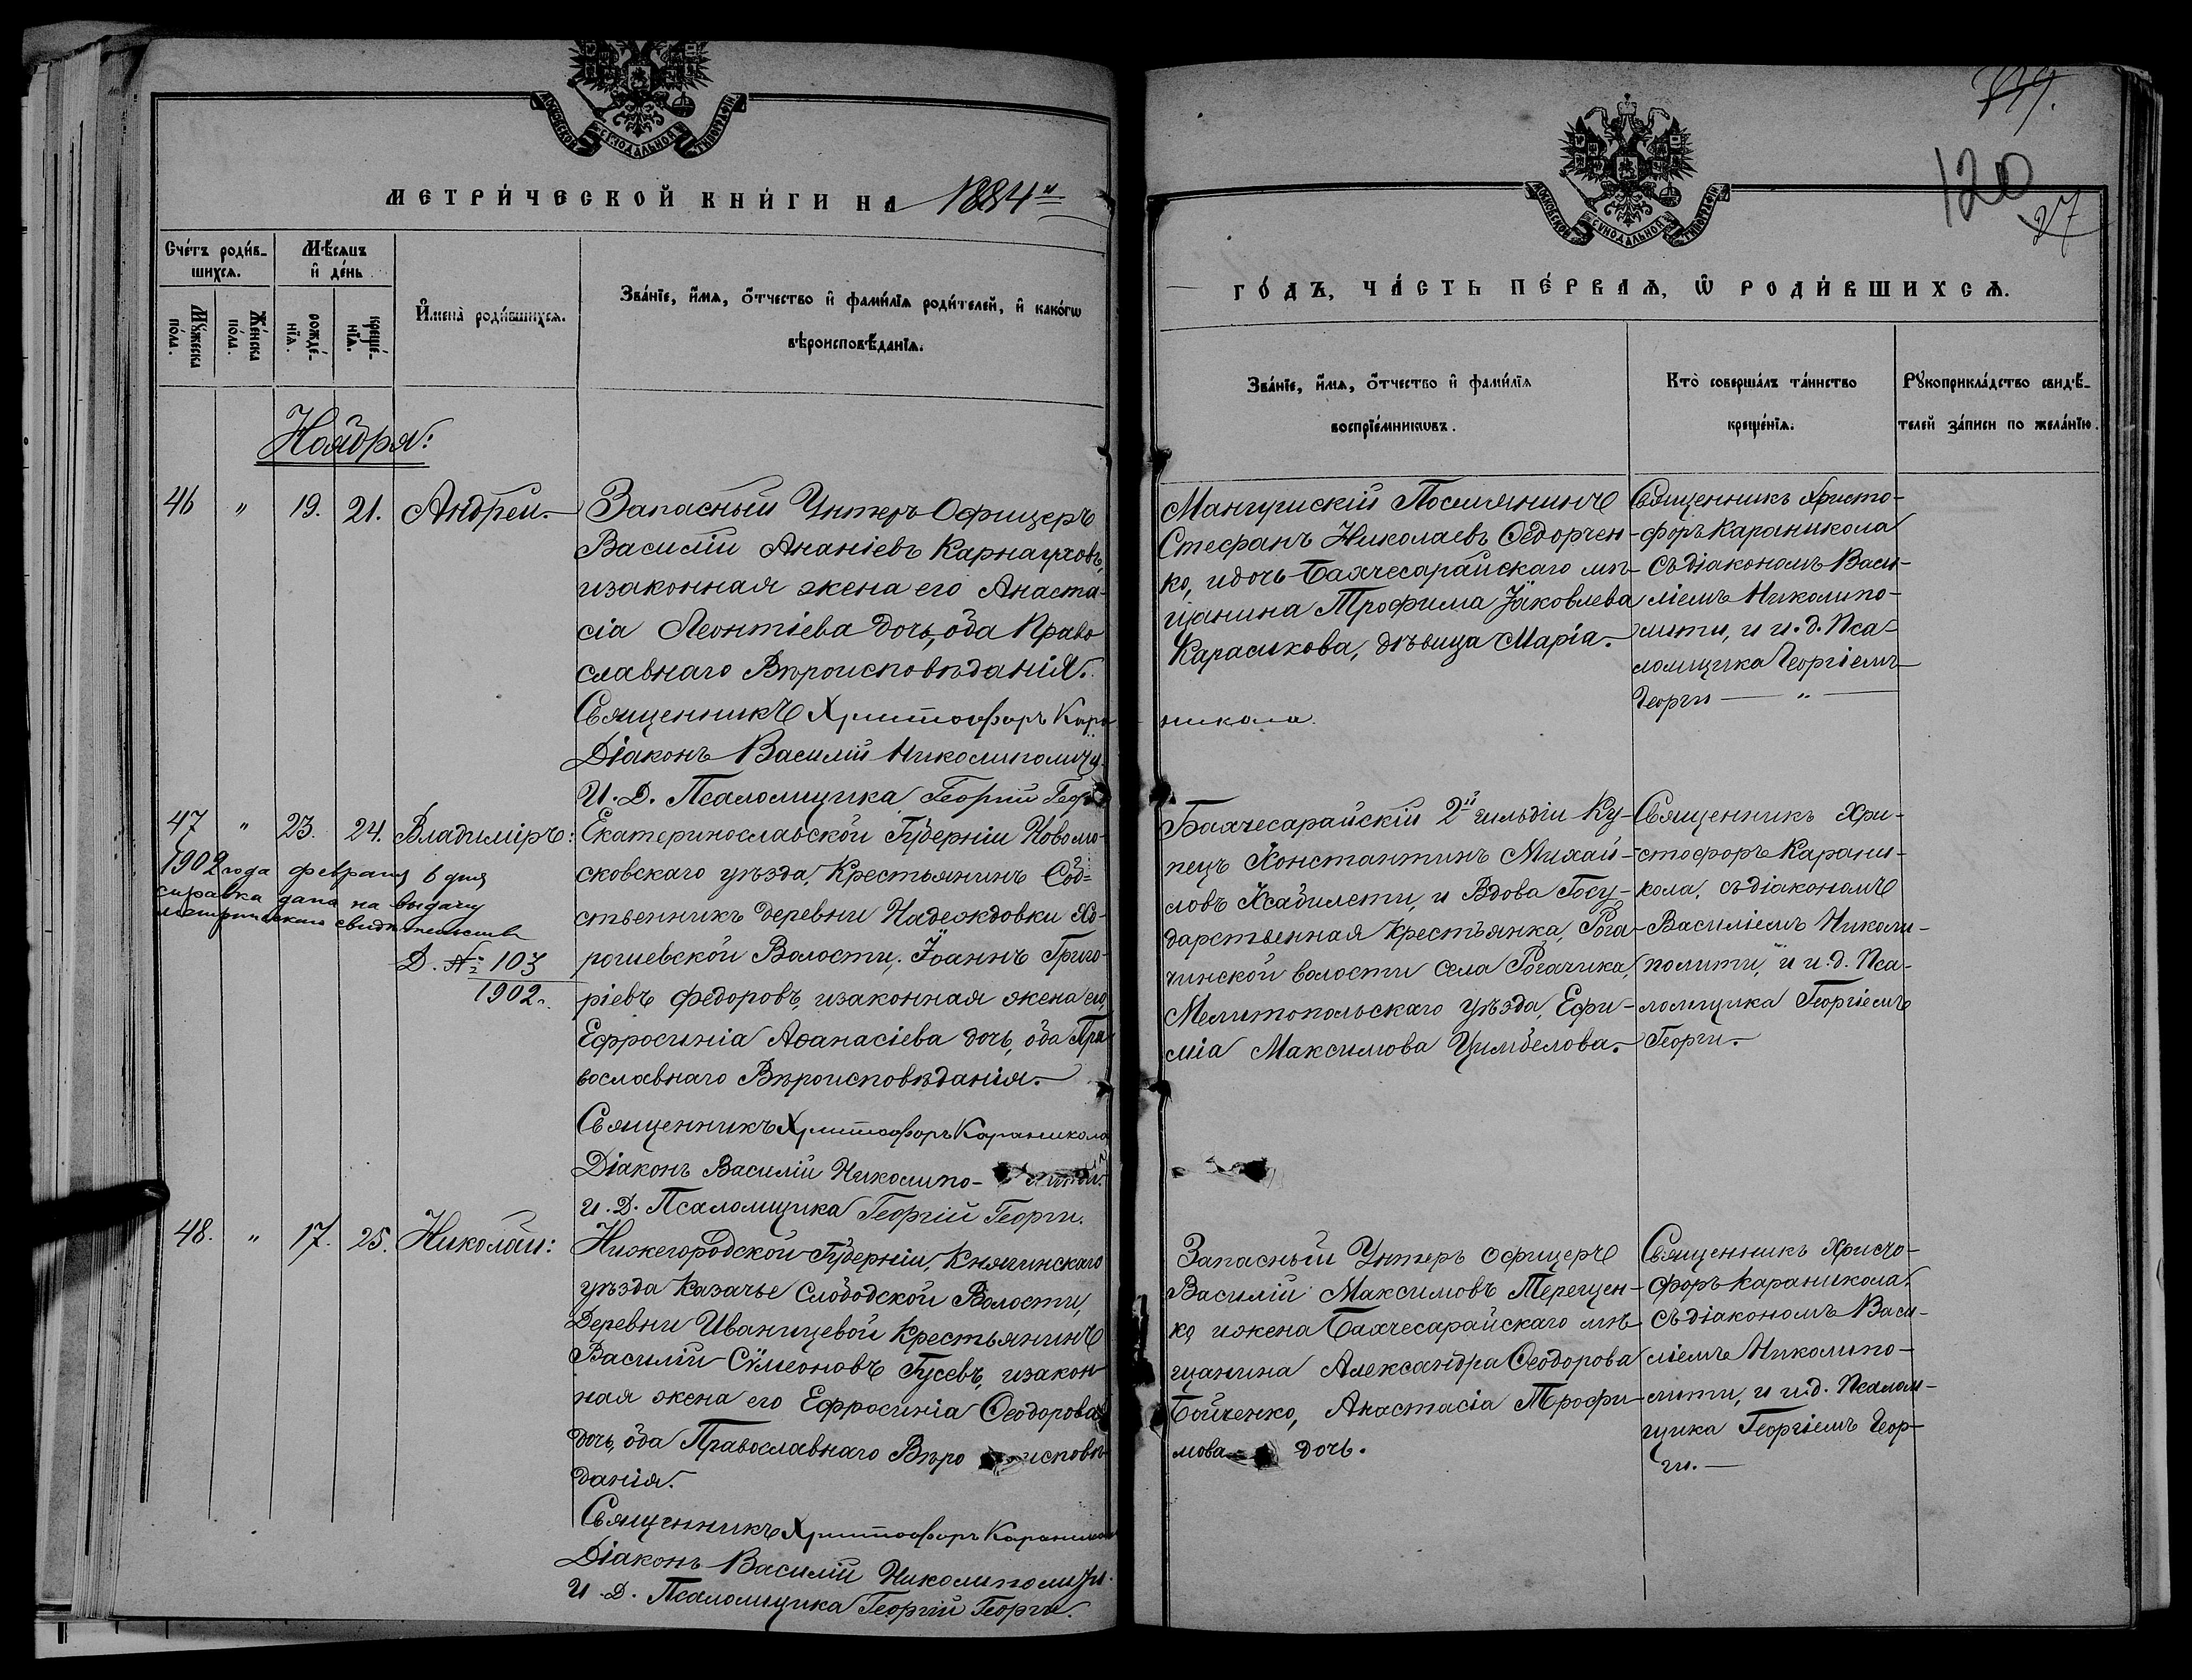 МОСКОВСКОЙ СѴНОДАЛЬНОЙ ТИПОГРАФІИ
МЕТРИ́ЧЕСКОЙ КНИ́ГИ НА 1884й
Сче́тъ роди́в-
шихсѧ.
Мѣ́сѧцъ
и҆ де́нь
Мꙋ́жеска
по́ла.
Же́нска
по́ла.
рожде́-
нїѧ.
креще́-
нїѧ.
И҆мена̀ роди́вшихсѧ.
Зва́нїе, и҆́мѧ, ѻ҆́тчество и҆ фами́лїѧ роди́телей, и҆ како́гѡ
вѣроисповѣ́данїѧ.
Ноября:
46 " 19. 21. Андрей.
Запасный Унтеръ Офицеръ
Василій Ананіевъ Карнауховъ,
изаконная жена его Анаста-
сія Леонтіева дочь, оба Право
славнаго Вѣроисповѣданія.
Священникъ Христофоръ Кара
Діаконъ Василій Николиполити
И. Д. Псаломщика Георгій Георги
47 " 23. 24. Владиміръ:
1902 года февраля 6 дня
справка дана на выдачу
метрическаго свидѣтельства
Д. № 103
1902 г.
Екатеринославской Губерніи Новомо-
сковскаго уѣзда, Крестьянинъ Соб=
ственникъ деревни Надеждовки Хо-
рошевской Волости, Іоаннъ Григо-
ріевъ Федоровъ, изаконная жена его,
Ефросинія Аѳанасіева дочь, оба Пра
вославнаго Вѣроисповѣданія.
Священникъ Христофоръ Караникола
Діаконъ Василій Николипо-лити.
И. Д. Псаломщика Георгій Георги.
48. " 17. 25. Николай:
Нижегородской Губерніи, Княгинскаго
уѣзда Казачье Слободской Волости,
Деревни Иванцевой Крестьянинъ
Василій Сѵмеоновъ Гусевъ, изакон
ная жена его Ефросинія Ѳеодорова
дочь, оба Православнаго Вѣро исповѣ
данія.
Священникъ Христофоръ Караникола
Діаконъ Василій Николиполити.
И. Д. Псаломщика Георгій Георги.
119.
120
27
МОСКОВСКОЙ СѴНОДАЛЬНОЙ ТИПОГРАФІИ
ГО́ДЪ, ЧА́СТЬ ПЕ́РВАѦ, Ѡ҆ РОДИ́ВШИХСѦ.
Зва́нїе, и҆́мѧ, ѻ҆́тчество и҆ фами́лїѧ
воспрїе́мникѡвъ.
Кто̀ соверша́лъ та́инство
креще́нїѧ.
Рꙋкоприкла́дство свидѣ́-
телей за́писи по жела́нїю.
Мангушскій Поселянинъ
Стефанъ Николаевъ Ѳедорчен-
ко, идочь Бахчесарайскаго мѣ-
щанина Трофима Іаковлева
Карасикова, дѣвица Марія.
никола.
Священникъ Христо-
форъ Караникола
съ діакономъ Васи-
ліемъ Николипо-
лити, и и. д. Пса-
ломщика Георгіемъ
Георги — " —
Бахчесарайскій 2й гильдіи Ку-
пецъ Константинъ Михай-
ловъ Хаджилети, и Вдова Госу-
дарственная Крестьянка, Рога-
чинской волости села Рогачика,
Мелитопольскаго Уѣзда, Ефи-
мія Максимова Цимбелова.
Священникъ Хри-
стофоръ Карани-
кола, съ діакономъ
Василіемъ Николи-
полити, и и. д. Пса-
ломщика Георгіемъ
Георги.
Запасный Унтеръ офицеръ
Василій Максимовъ Терещен-
ко ижена Бахчесарайскаго мѣ-
щанина Александра Ѳеодорова
Бойченко, Анастасія Трофи-
мова дочь.
Священникъ Христо-
форъ Караникола
съ діакономъ Васи-
ліемъ Николипо-
лити, и и.д. Псалом-
щика Георгіемъ Геор-
ги.